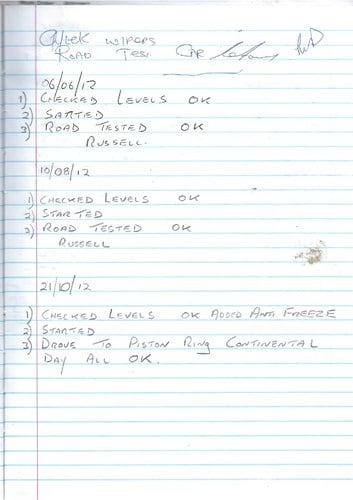 CHECK WIPERS
ROAD TEST. CAR
06/06/12
1) CHECKED LEVELS OK
2) SARTED
3) ROAD TESTED OK
RUSSELL.
10/08/12
1) CHECKED LEVELS OK
2) STARTED
3) ROAD TESTED OK
RUSSELL
21/10/12
1) CHECKED LEVELS OK ADDED ANTI FREEZE
2) STARTED
3) DROVE TO PISTON RING CONTINENTAL
DAY ALL OK.